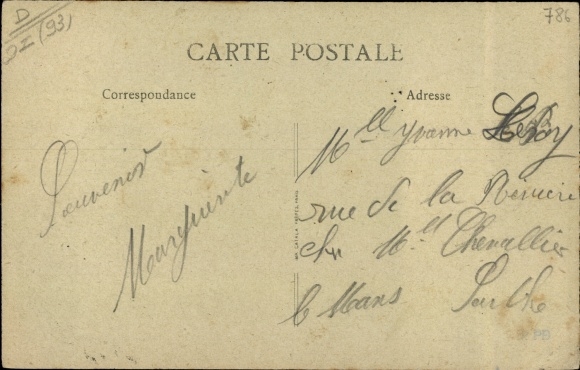 D
DI (93)
786
CARTE POSTALE
Correspondance
Adresse
Souvenir
Marguerite
Mlle Yvonne Leroy
rue de la
chez Mlle Chevallier
le Mans Sarthe